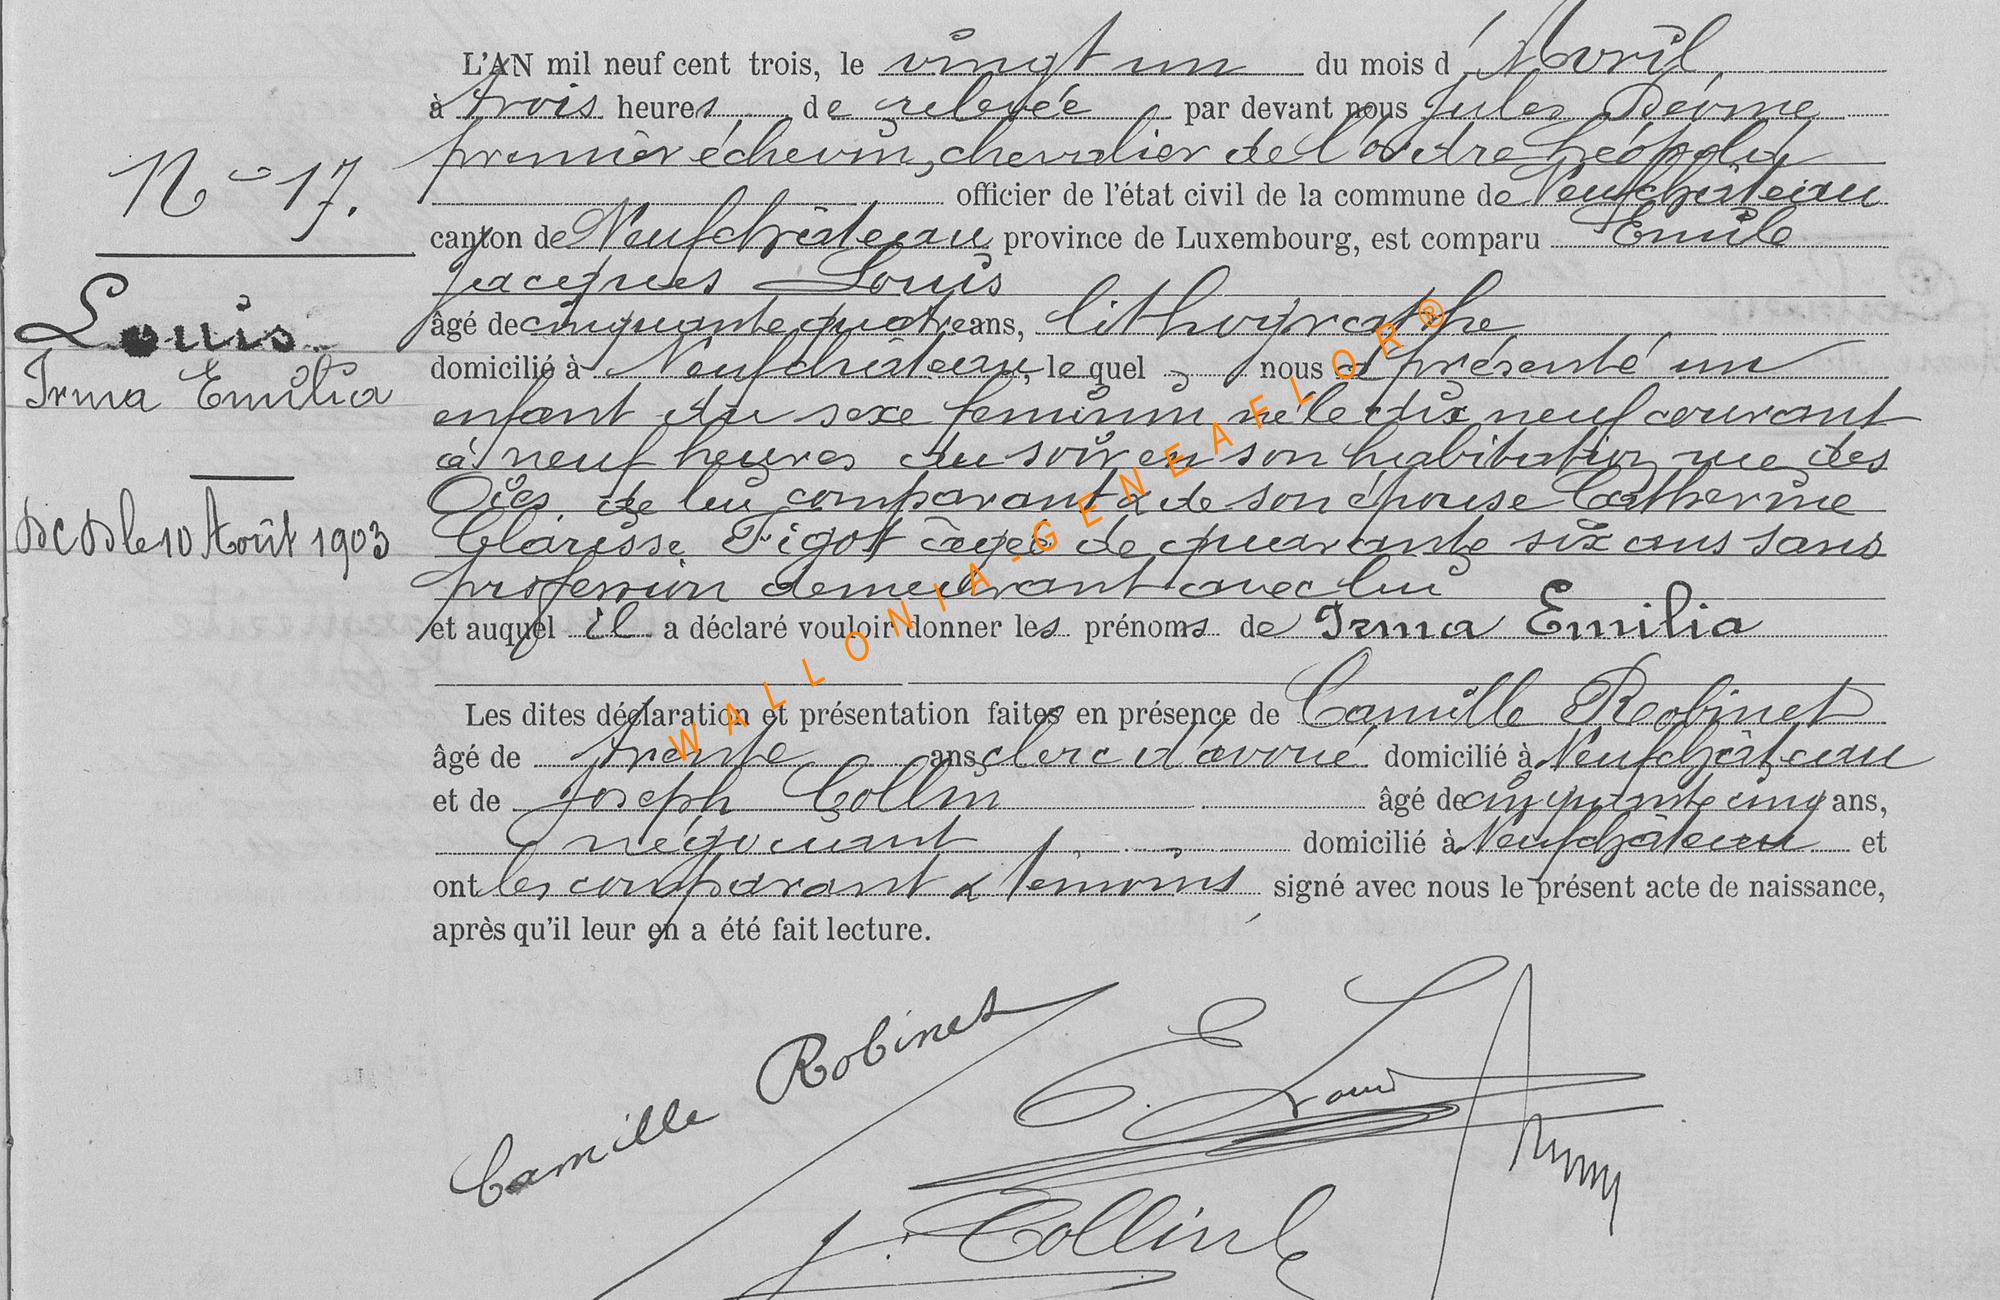 N° 17.
Louis
Irma Emilia
DCD le 10 Août 1903
L'AN mil neuf cent trois, le vingt un du mois d'Avril
à trois heures de relevée par devant nous Jules
premier échevin, chevalier de l'ordre Léopold
officier de l'état civil de la commune de Neufchâteau
canton de Neufchâteau province de Luxembourg, est comparu Emile
Jacques Louis
âgé de cinquante quatre ans, lithographe
domicilié à Neufchâteau, le quel nous a présenté un
enfant du sexe feminin né le dix neuf courant
à neuf heures du soir en son habitation rue des
Oies, de lui comparant & de son épouse Catherine
Clarisse Figot âgée de quarante six ans sans
profession demeurant avec lui
et auquel il a déclaré vouloir donner les prénoms de Irma Emilia
Les dites déclaration et présentation faites en présence de Camille Robinet
âgé de trente ans, clerc d'avoué domicilié à Neufchâteau
et de Joseph Collin âgé de cinquante cinq ans,
négociant domicilié à Neufchâteau et
ont les comparant & témoins signé avec nous le présent acte de naissance,
après qu'il leur en a été fait lecture.
Camille Robinet
E. Louis
J. Collin
WALLONIA-GENEAFLOR®